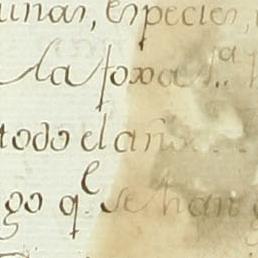 unas, especies,
la foxas
todo el año
go q.^e se han